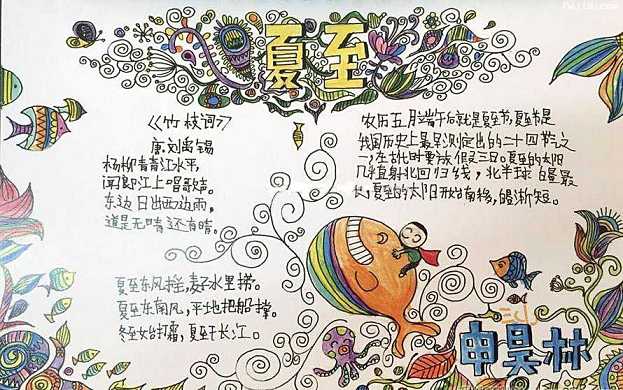 夏至
《竹枝词》
唐 刘禹锡
杨柳青青江水平,
闻郎江上唱歌声。
东边日出西边雨,
道是无晴还有晴。
夏至东风摇,麦子水里捞。
夏至东南风,平地把船撑。
冬至始打霜,夏至干长江。
农历五月端午后就是夏至节,夏至是
我国历史上最早测定出的二十四节之
一,在古时要放假三日。夏至的太阳
几乎直射北回归线,北半球
夏至的太阳开始南移,
渐短。
申昊林